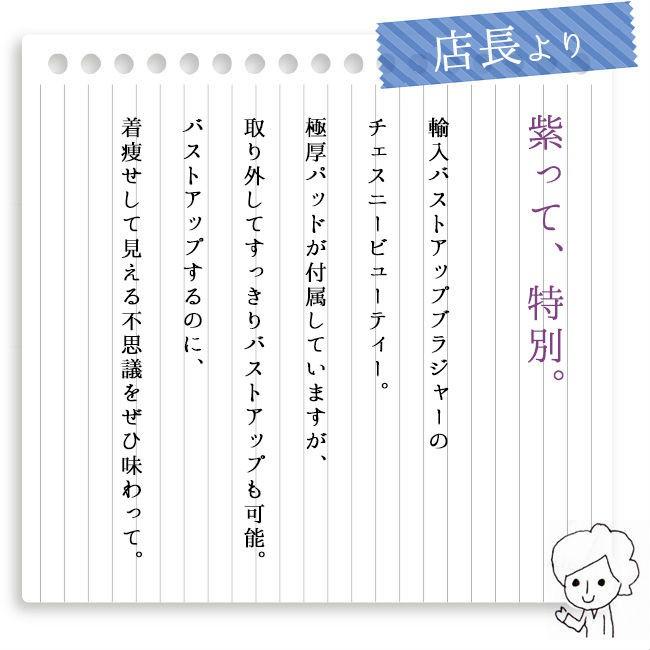 店長より
紫って、特別。
輸入バストアップブラジャーの
チェスニービューティー。
極厚パッドが付属していますが、
取り外してすっきりバストアップも可能。
バストアップするのに、
着痩せして見える不思議をぜひ味わって。